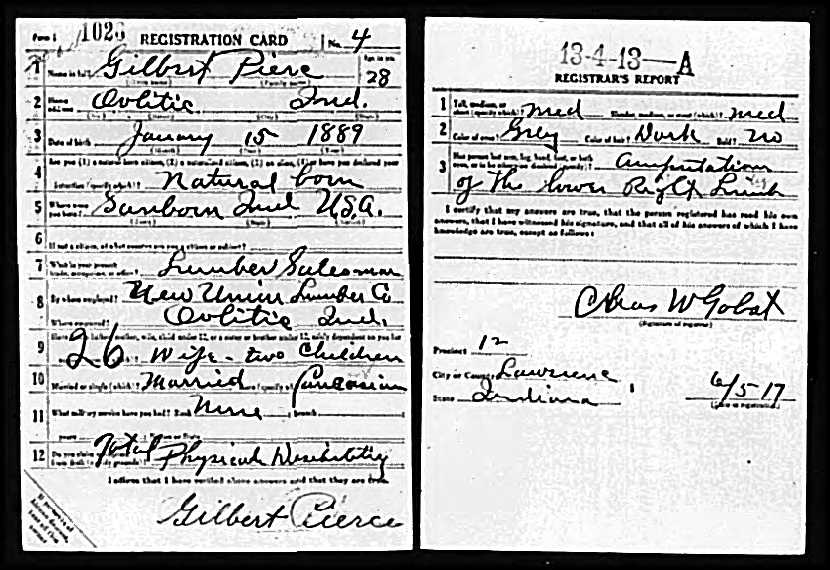 Form 1 1026 REGISTRATION CARD No. 4
1 Name in full Gilbert Pierc Age in yrs. 28
(Given name) (Family name)
2 Home address Oolitic Ind.
3 Date of birth January 15 1889
(Month) (Day) (Year)
4 Are you (1) a natural born citizen, (2) a naturalized citizen, (3) an alien, (4) or have you declared your
intention (specify which)? Natural born
5 Where were you born? Sanborn Ind U.S.A.
6 If not a citizen, of what country are you a citizen or subject?
7 What is your present trade, occupation, or office? Lumber Salesman
8 By whom employed? New Union Lumber Co
Where employed? Oolitic Ind.
9 Have you a father, mother, wife, child under 12, or a sister or brother under 12, solely dependent on you for
26 Wife - two Children
10 Married or single (which)? Married Race (specify which)? Caucasian
11 What military service have you had? Rank None ; branch
years Nation or State
12 Do you claim exemption from draft (specify grounds)? Total Physical Dissability
I affirm that I have verified above answers and that they are true.
Gilbert Pierce
If person is of
African descent,
13-4-13-A
REGISTRAR'S REPORT
1 Tall, medium, or short (specify which)? Med Slender, medium, or stout (which)? Med
2 Color of eyes? Grey Color of hair? Dark Bald? No
3 Has person lost arm, leg, hand, foot, or both eyes, or is he otherwise disabled (specify)? Amputation
of the lower Right Limb
I certify that my answers are true, that the person registered has read his own
answers, that I have witnessed his signature, and that all of his answers of which I have
knowledge are true, except as follows:
Chas W Gobat
(Signature of registrar)
Precinct 12
City or County Lawrence
State Indiana
6/5 17
(Date of registration)